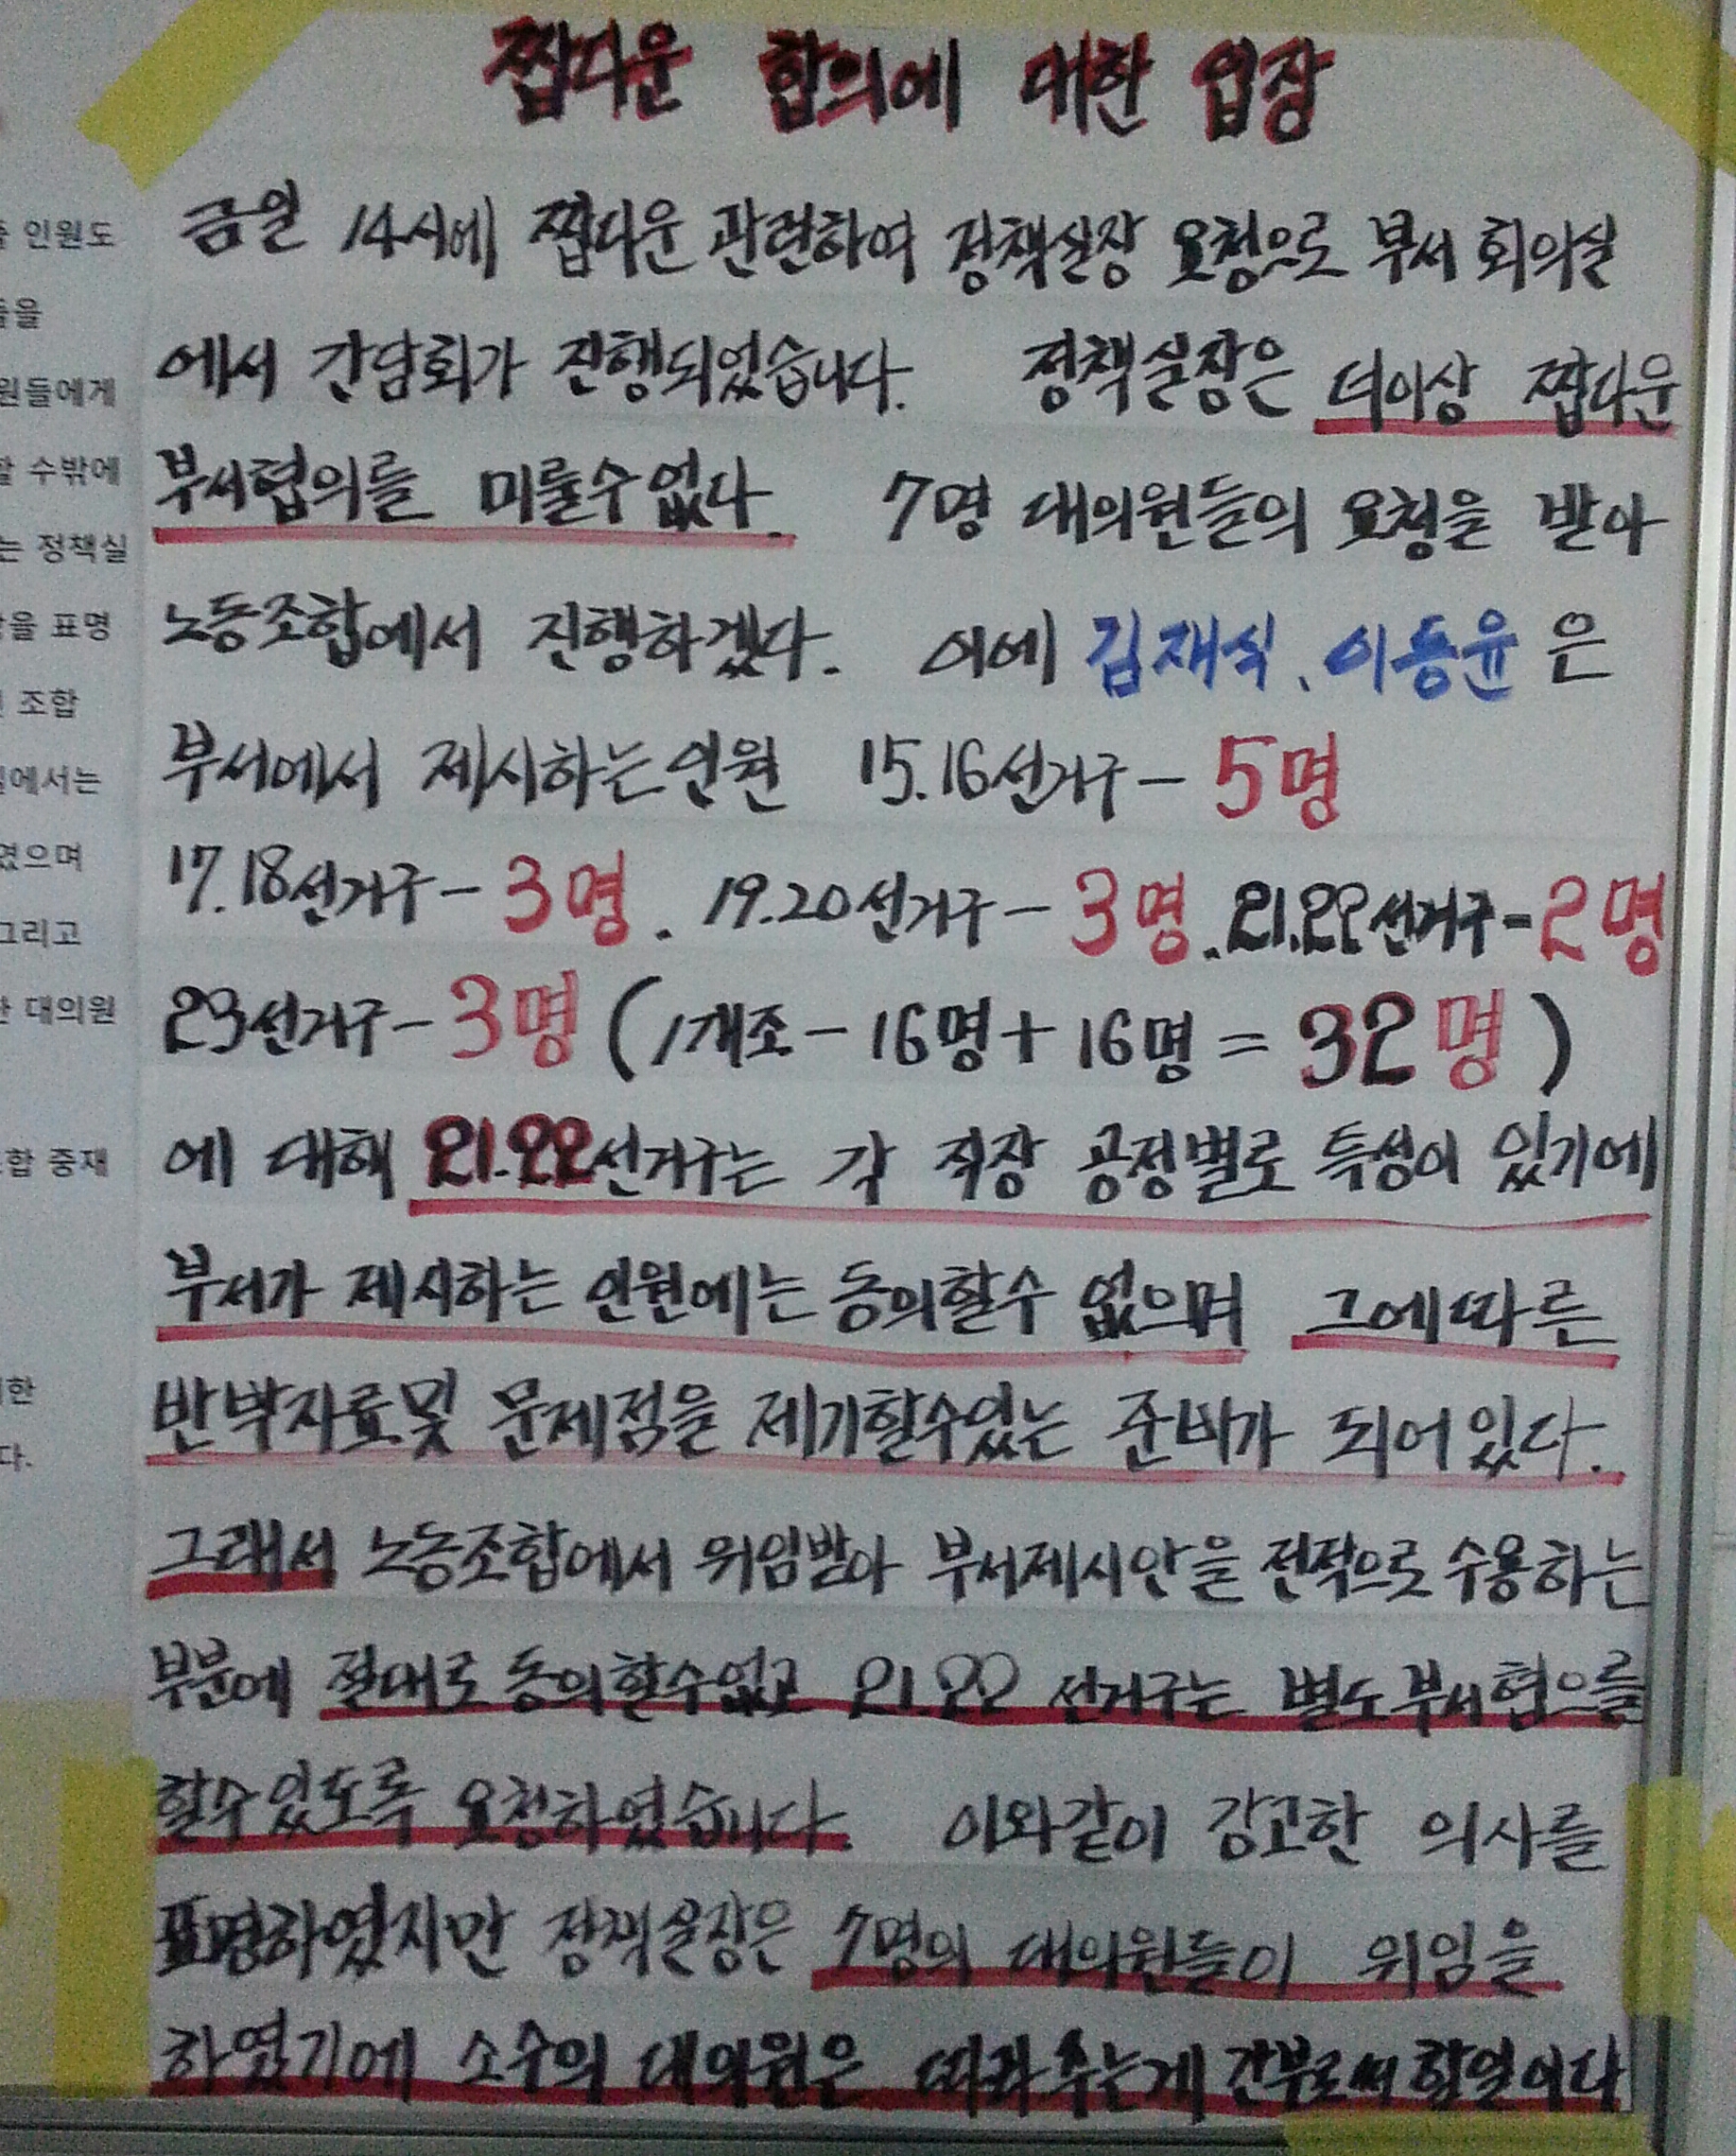 짭다운 합의에 대한 입장
금일 14시에 짭다운 관련하여 정책실장 요청으로 부서 회의실
에서 간담회가 진행되었습니다. 정책실장은 더이상 짭다운
부서협의를 미룰수 없다. 7명 대의원들의 요청을 받아
노동조합에서 진행하겠다. 이에 김재식, 이동윤은
부서에서 제시하는 인원 15.16선거구- 5명
17.18선거구- 3명. 19.20선거구- 3명.21.22선거구-2명
23선거구- 3명 (1개조- 16명+ 16명 = 32명)
에 대해 21.22선거구는 각 직장 공정별로 특성이 있기에
부서가 제시하는 인원에는 동의할수 없으며 그에따른
반박자료및 문제점을 제기할수있는 준비가 되어있다.
그래서 노동조합에서 위임받아 부서제시안을 전적으로 수용하는
부분에 절대로 동의할수없고 21.22 선거구는 별도부서협으를
할수있도록 요청하였습니다. 이와같이 강고한 의사를
표명하였지만 정책실장은 7명의 대의원들이 위임을
하였기에 소수의 대의원은 따라주는게 간부로써 할일이다
인원도
들을
원들에게
할 수밖에
는 정책실
표명
조합
에서는
였으며
그리고
대의원
합 중재
한
다.